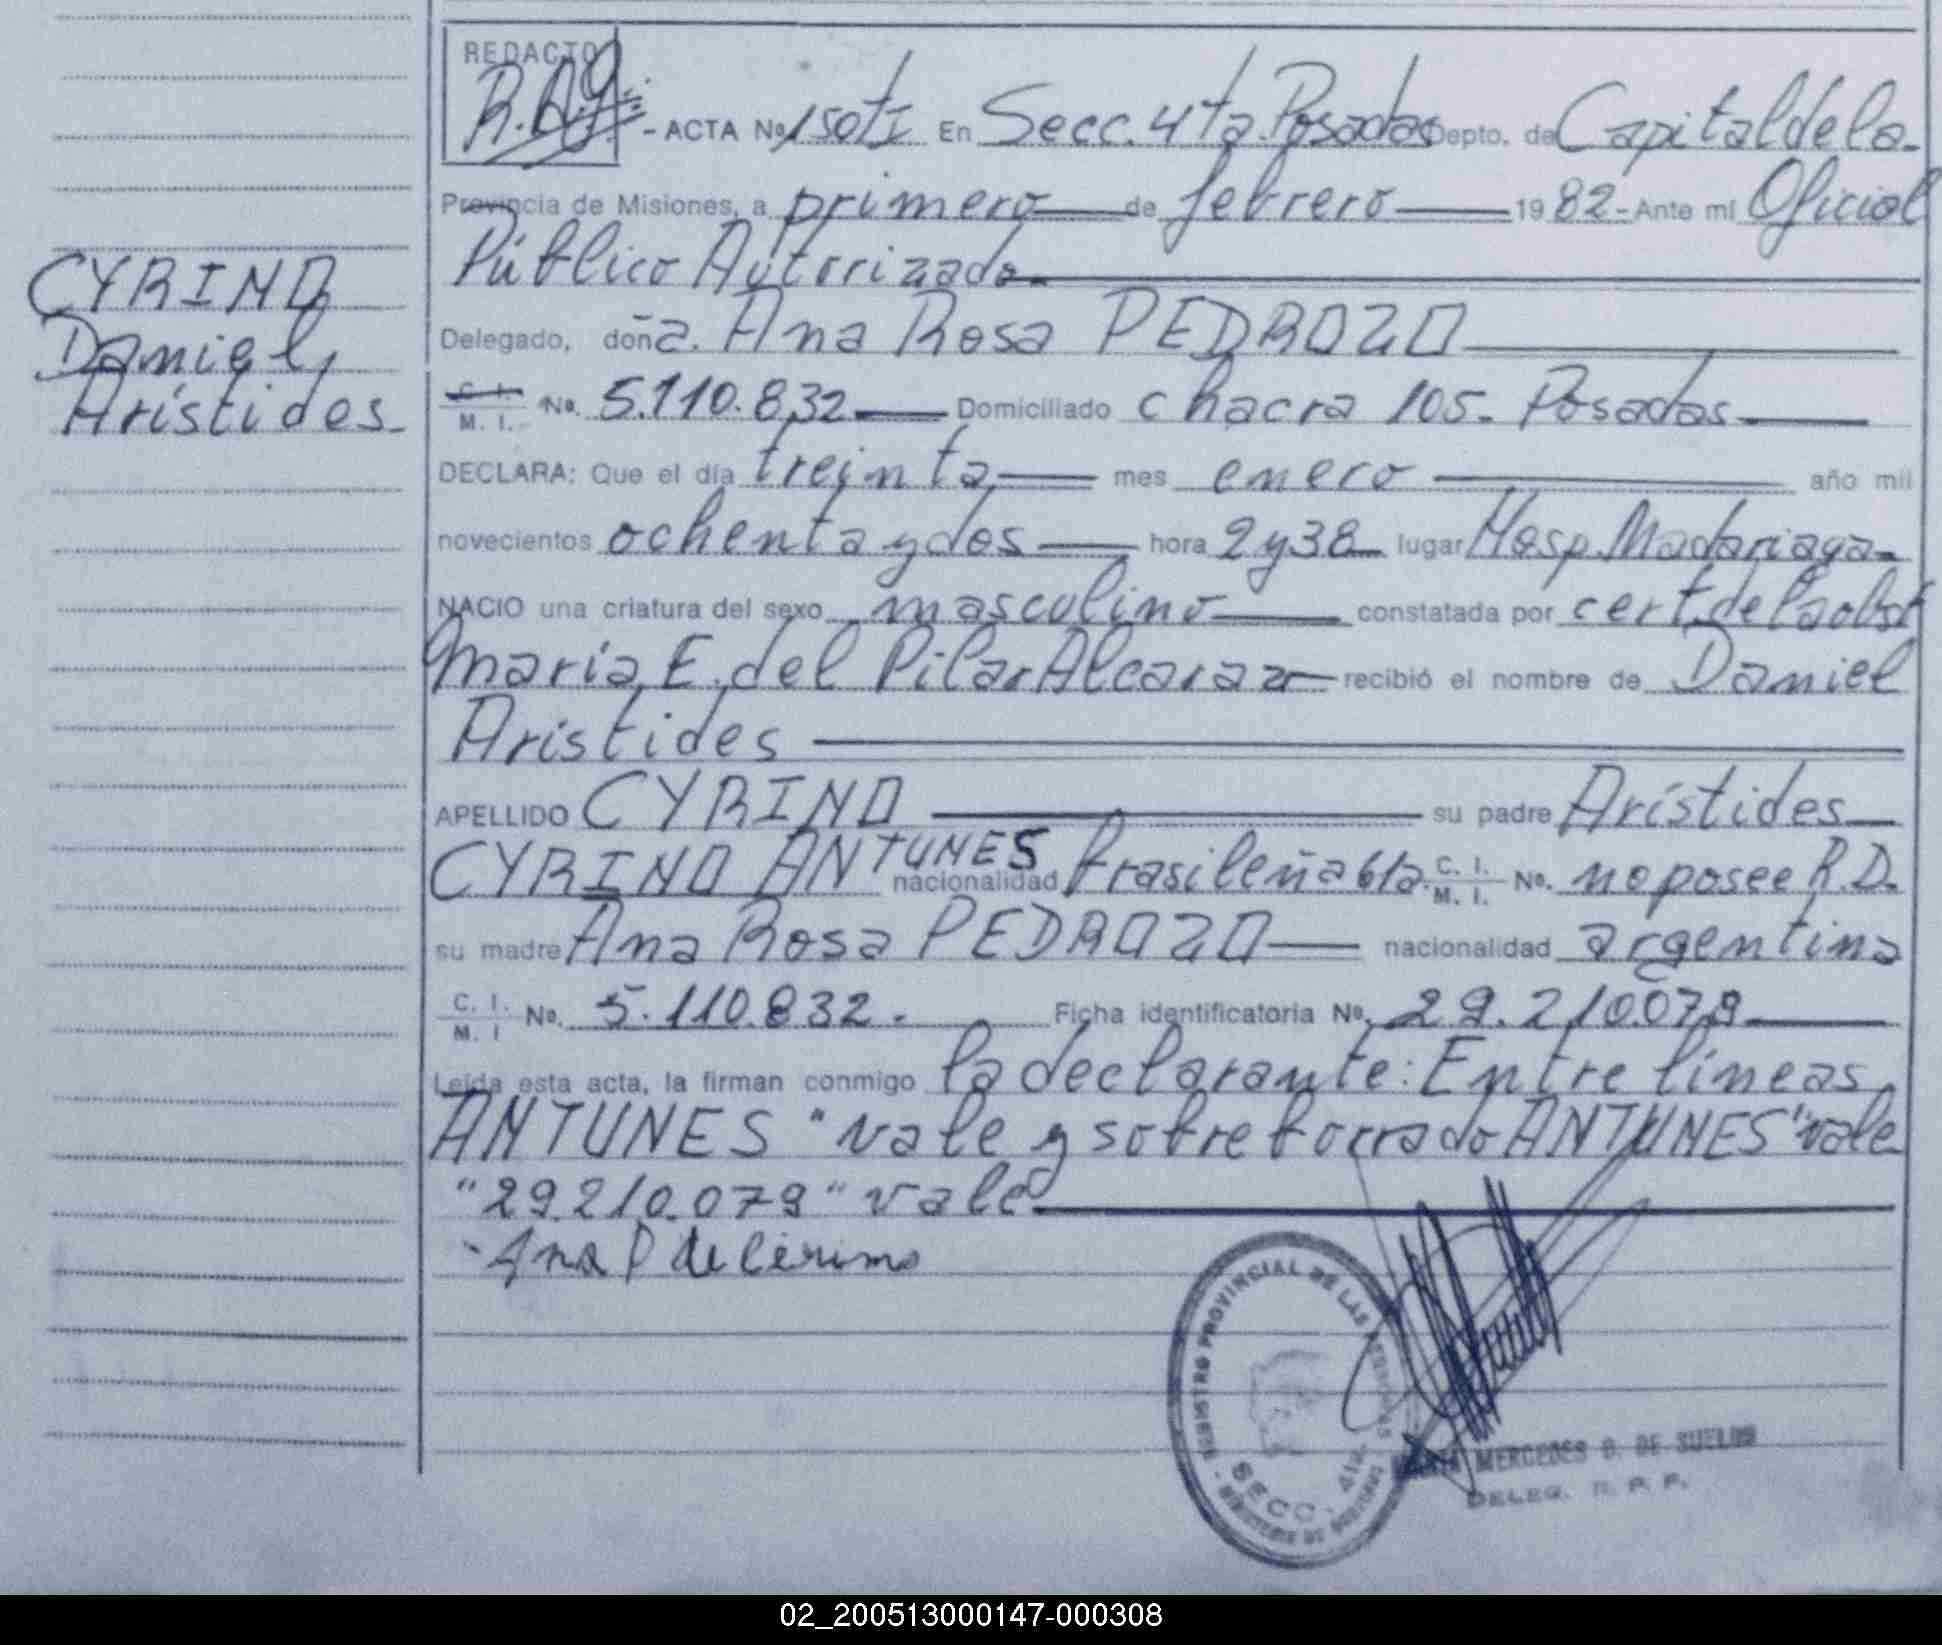 REDACTO
- ACTA No 150 tI En Secc. 4ta. Posadas Depto. de Capital de la-
Provincia de Misiones, a primero de febrero 1982- Ante mi Oficial
Público Autorizado
CYRINO
Daniel
Arístides-
Delegado, doña. Ana Rosa PEDROZO
C. I. M. I. No. 5.110.832 Domiciliado chacra 105- Posadas
DECLARA: Que el día treinta mes enero año mil
novecientos ochenta y dos hora 2 y 38 lugar Hosp. Madariaga-
NACIO una criatura del sexo masculino constatada por cert. de la obst
María E. del Pilar Alcaraz recibió el nombre de Daniel
Arístides
APELLIDO CYRINO su padre Arístides
CYRINO ANTUNES nacionalidad brasileña C. I. M. I. No. no posee R.D.
su madre Ana Rosa PEDROZO nacionalidad argentina
C. I. M. I No. 5.110.832. Ficha identificatoria No. 29.210.079
Leída esta acta, la firman conmigo la declarante: Entre líneas
ANTUNES " vale y sobre borrado ANTUNES" vale
"29.210.079" vale
Ana P de Cirino
REGISTRO PROVINCIAL DE LAS PERSONAS
SECC. 4ta.
MERCEDES B. DE SUELDO
DELEG. R. P. P.
02_200513000147-000308